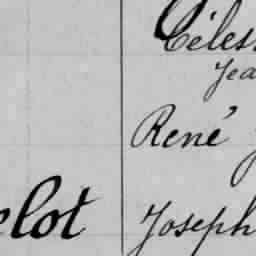 Céles
Jea
René
elot Joseph